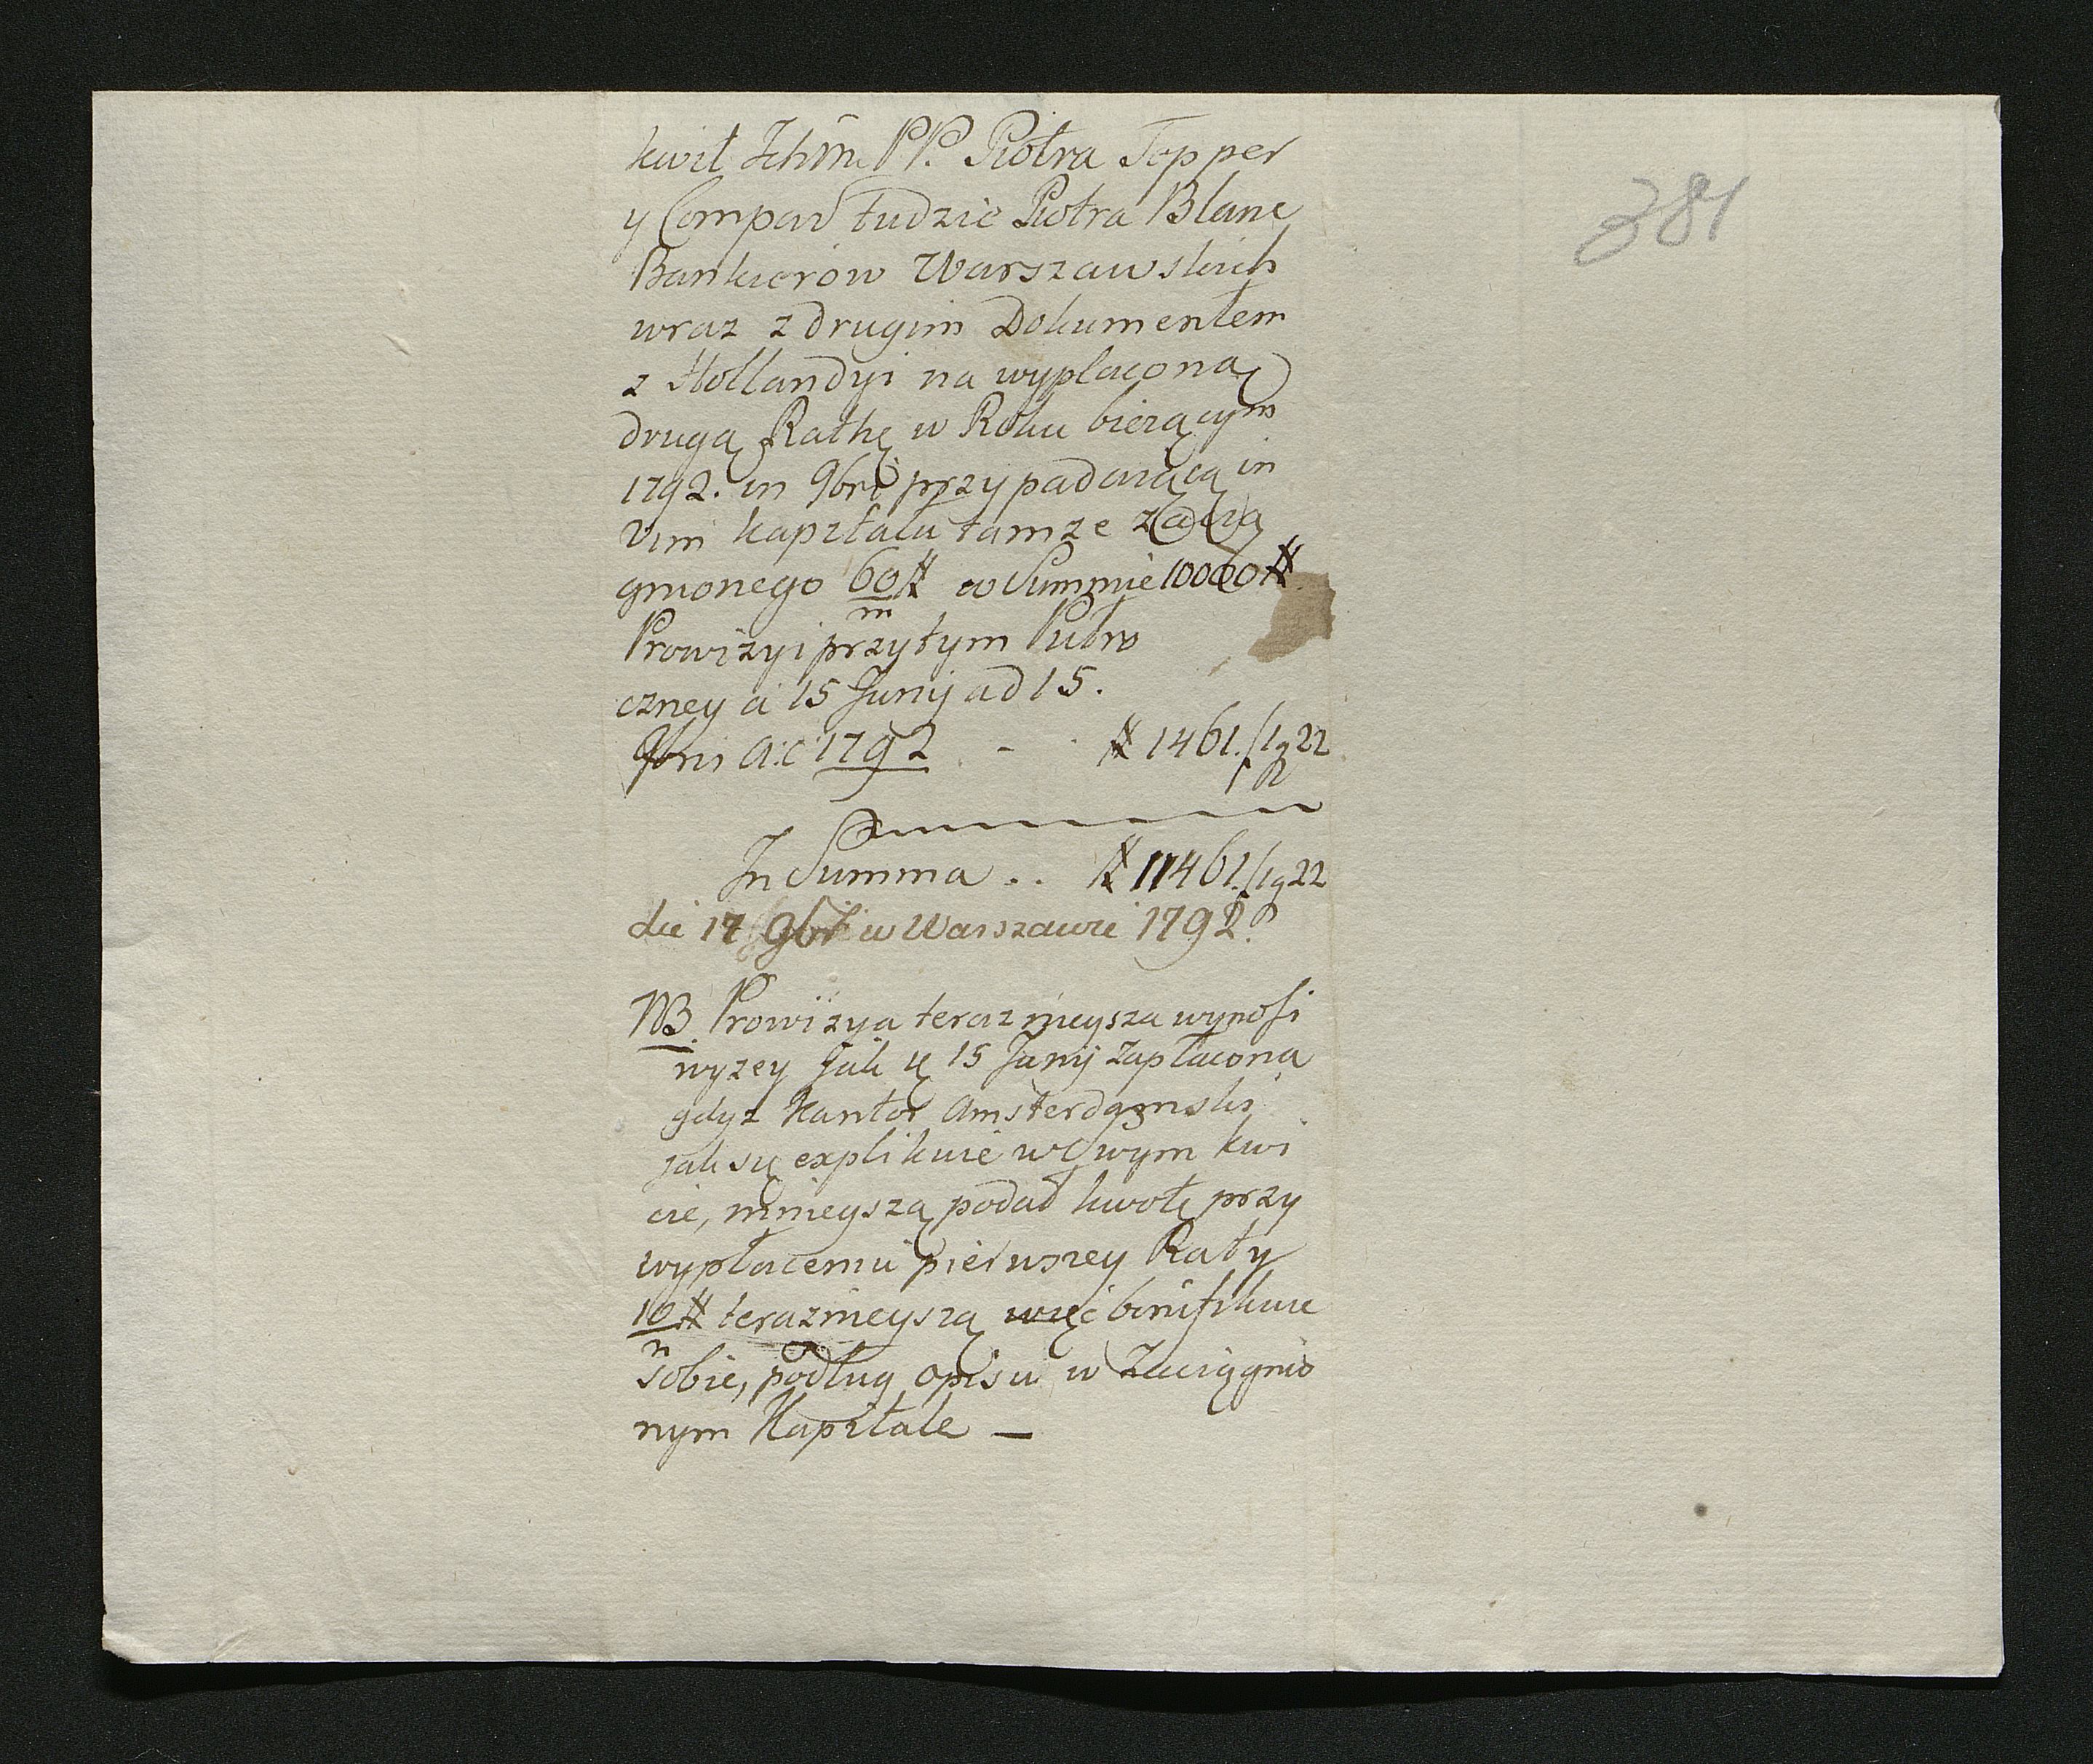 kwit Ichm PP. Piotra Tepper
y Comp tudzie Piotra Blanc
Bankierow Warszawskich
wraz z drugim Dokumentem
z Hollandyi na wypłaconą
drugą Rathę w Roku bierącym
1792. in 9bri przypadaiącą in
Vim kapitału tamze zacią
gnionego 60# w Summie 10000#
m
Prowizyi przytym Pułro
czney a 15 Junij ad 15.
9bris a:c: 1792 - # 1461. 22
In Summa .. # 11461. 22
die 17 9bri w Warszawie 1792.
NB. Prowizya teraznieysza wynosi
wyzey jak 15 Junij zapłacona
gdyz Kantor Amsterdamski
jak się explikuie w swym kwi
cie, mnieyszą podał kwotę przy
wypłaceniu pierwszey Raty
10# teraznieyszą więc bonifikuie
m
sobie, podług opisu w Zaciągnio
nym Kapitale —
381